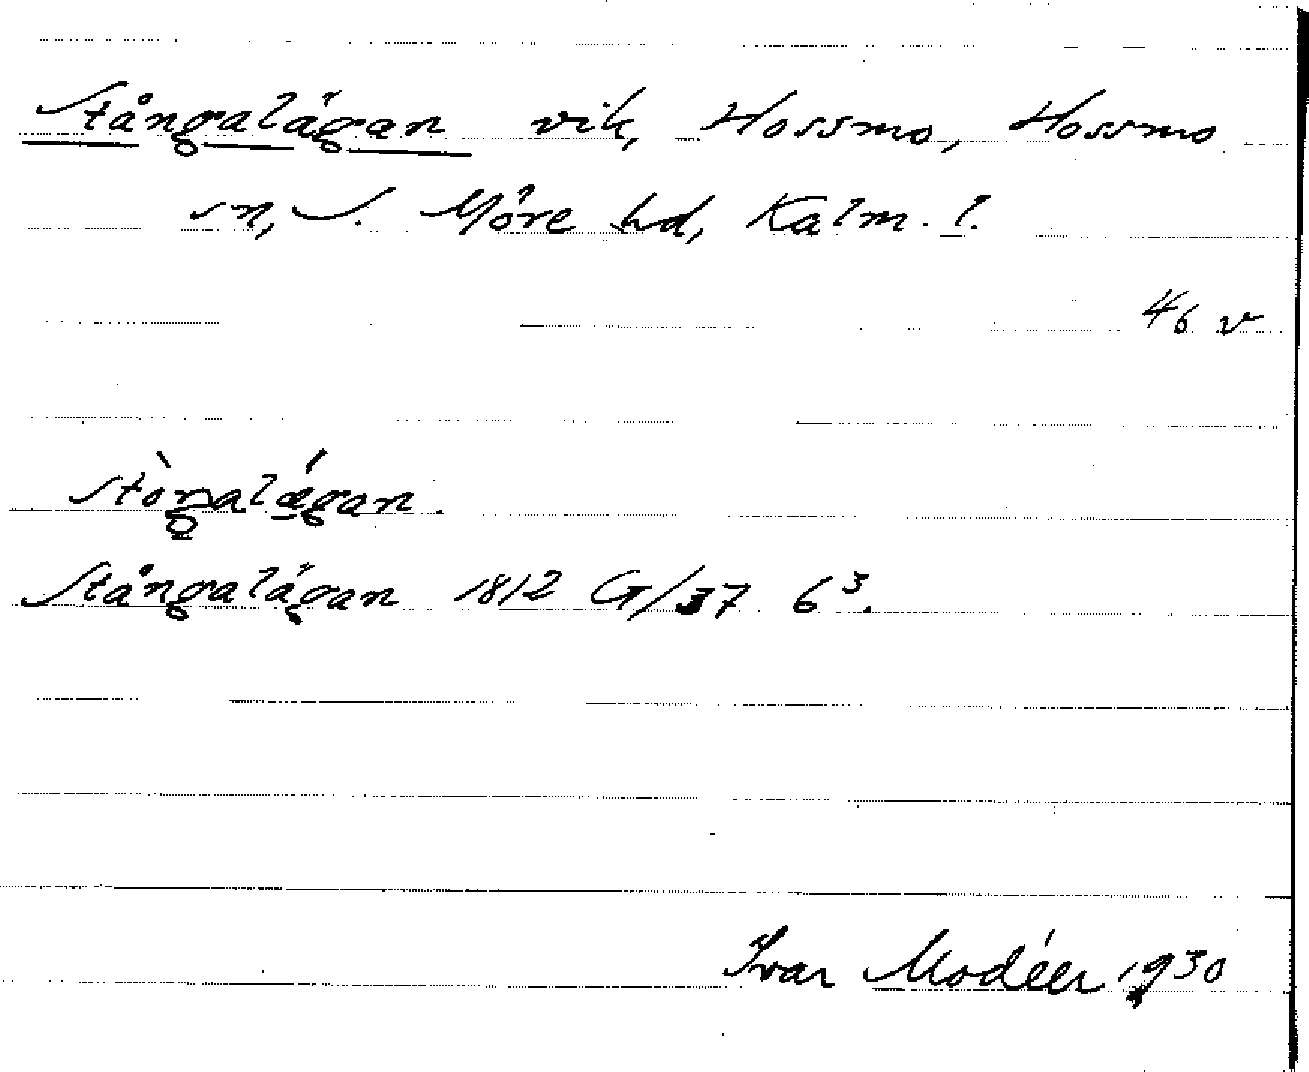 Stångalágan vik, Hossmo, Hossmo
sn, S. Möre hd, Kalm. l.
4/6 v
Stòŋalágan.
Stångalágan 1812 G/37 6³.
Ivar Modéer 1930